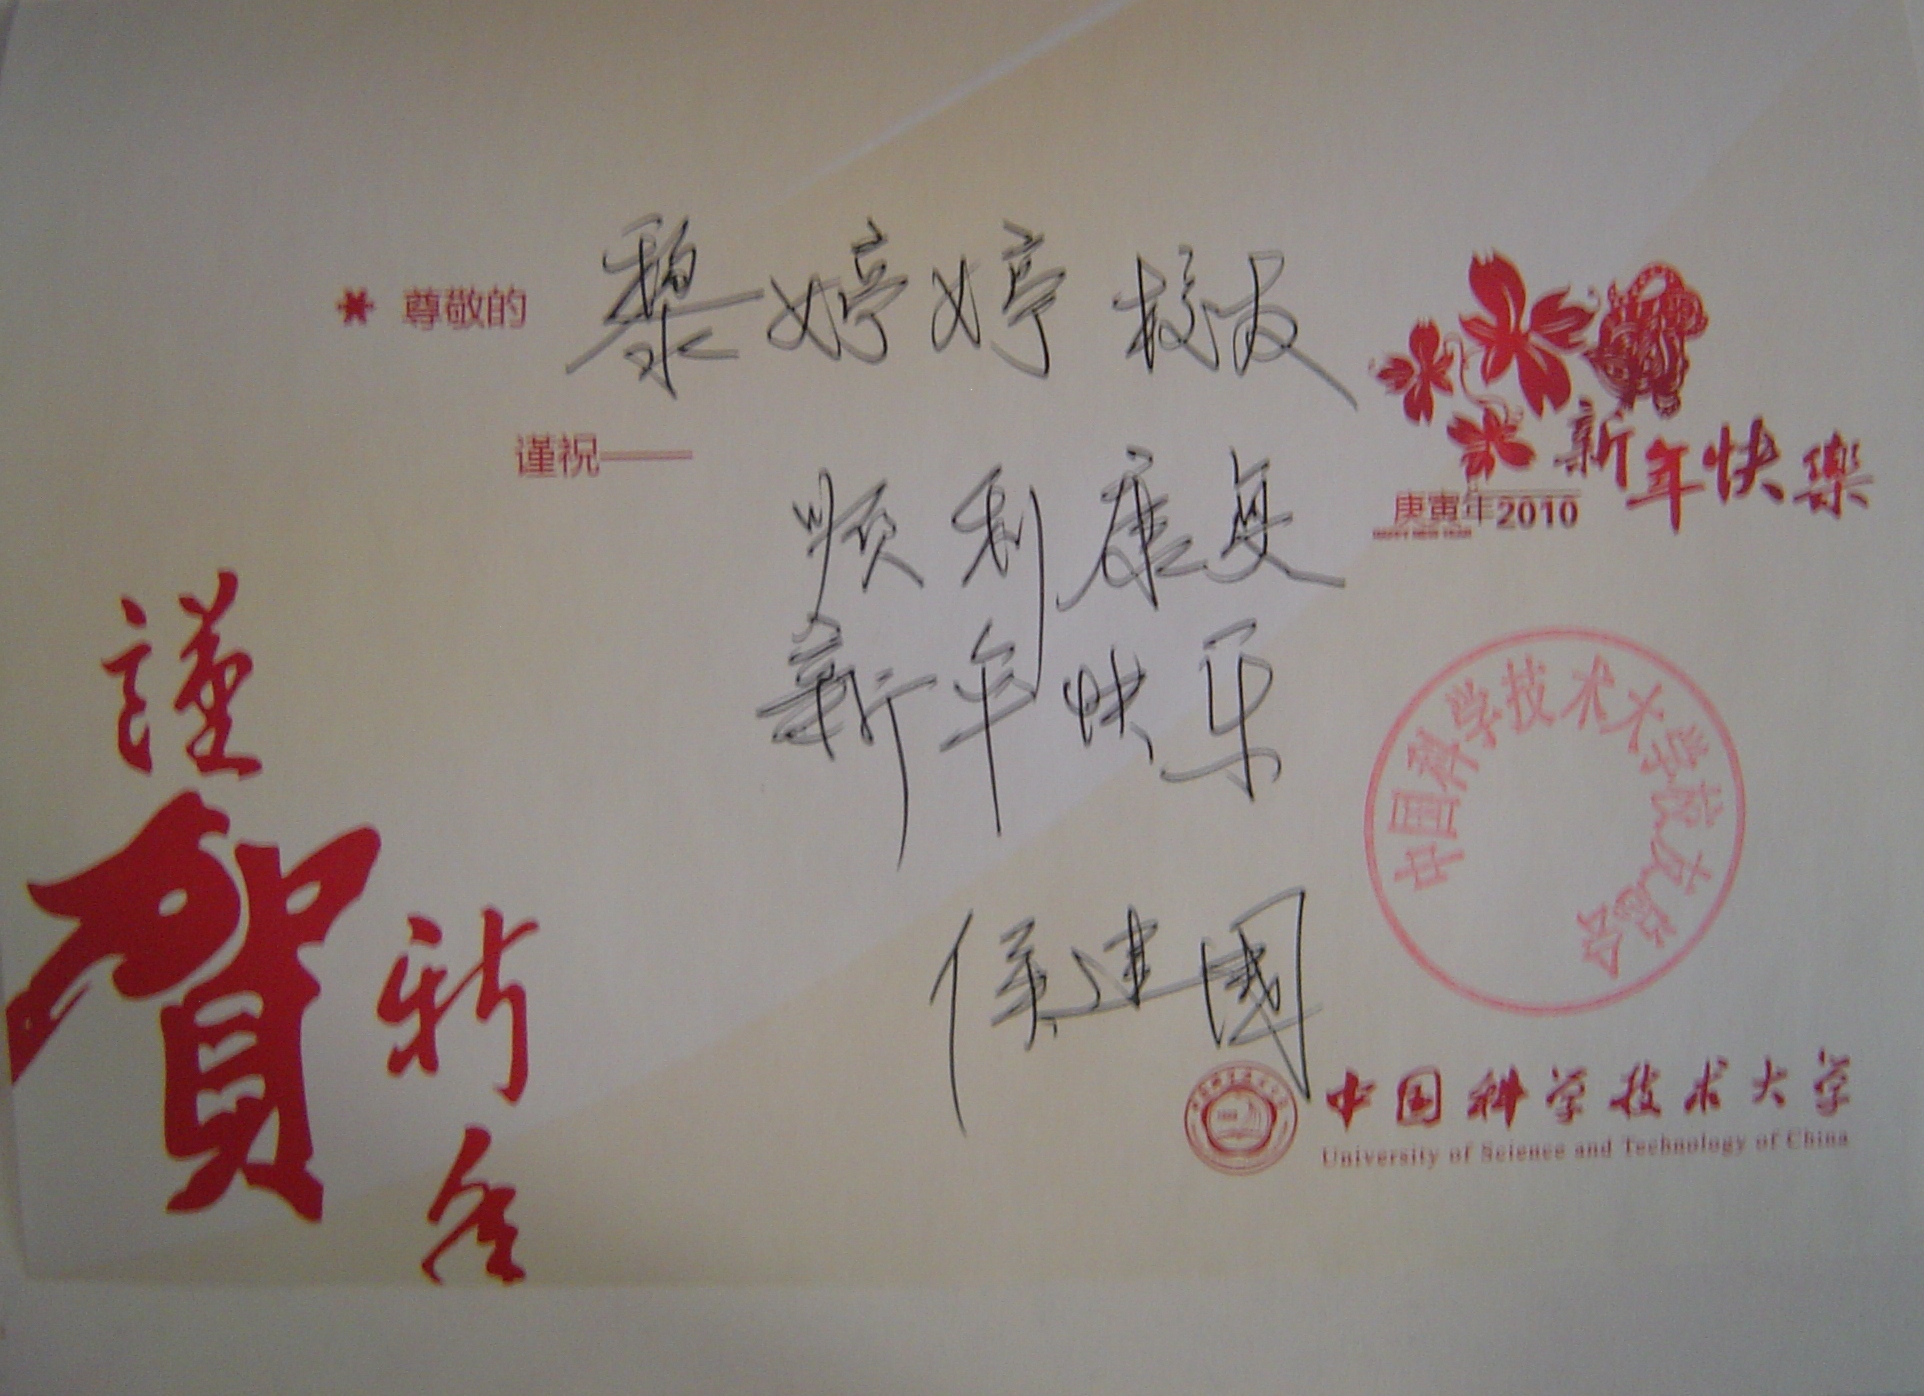 尊敬的 黎婷婷 校友
谨祝——
顺利康复
新年快乐
侯建國
新年快樂
庚寅年2010
HAPPY NEW YEAR
中国科学技术大学校友总会
謹賀新年
中国科学技术大学
University of Science and Technology of China